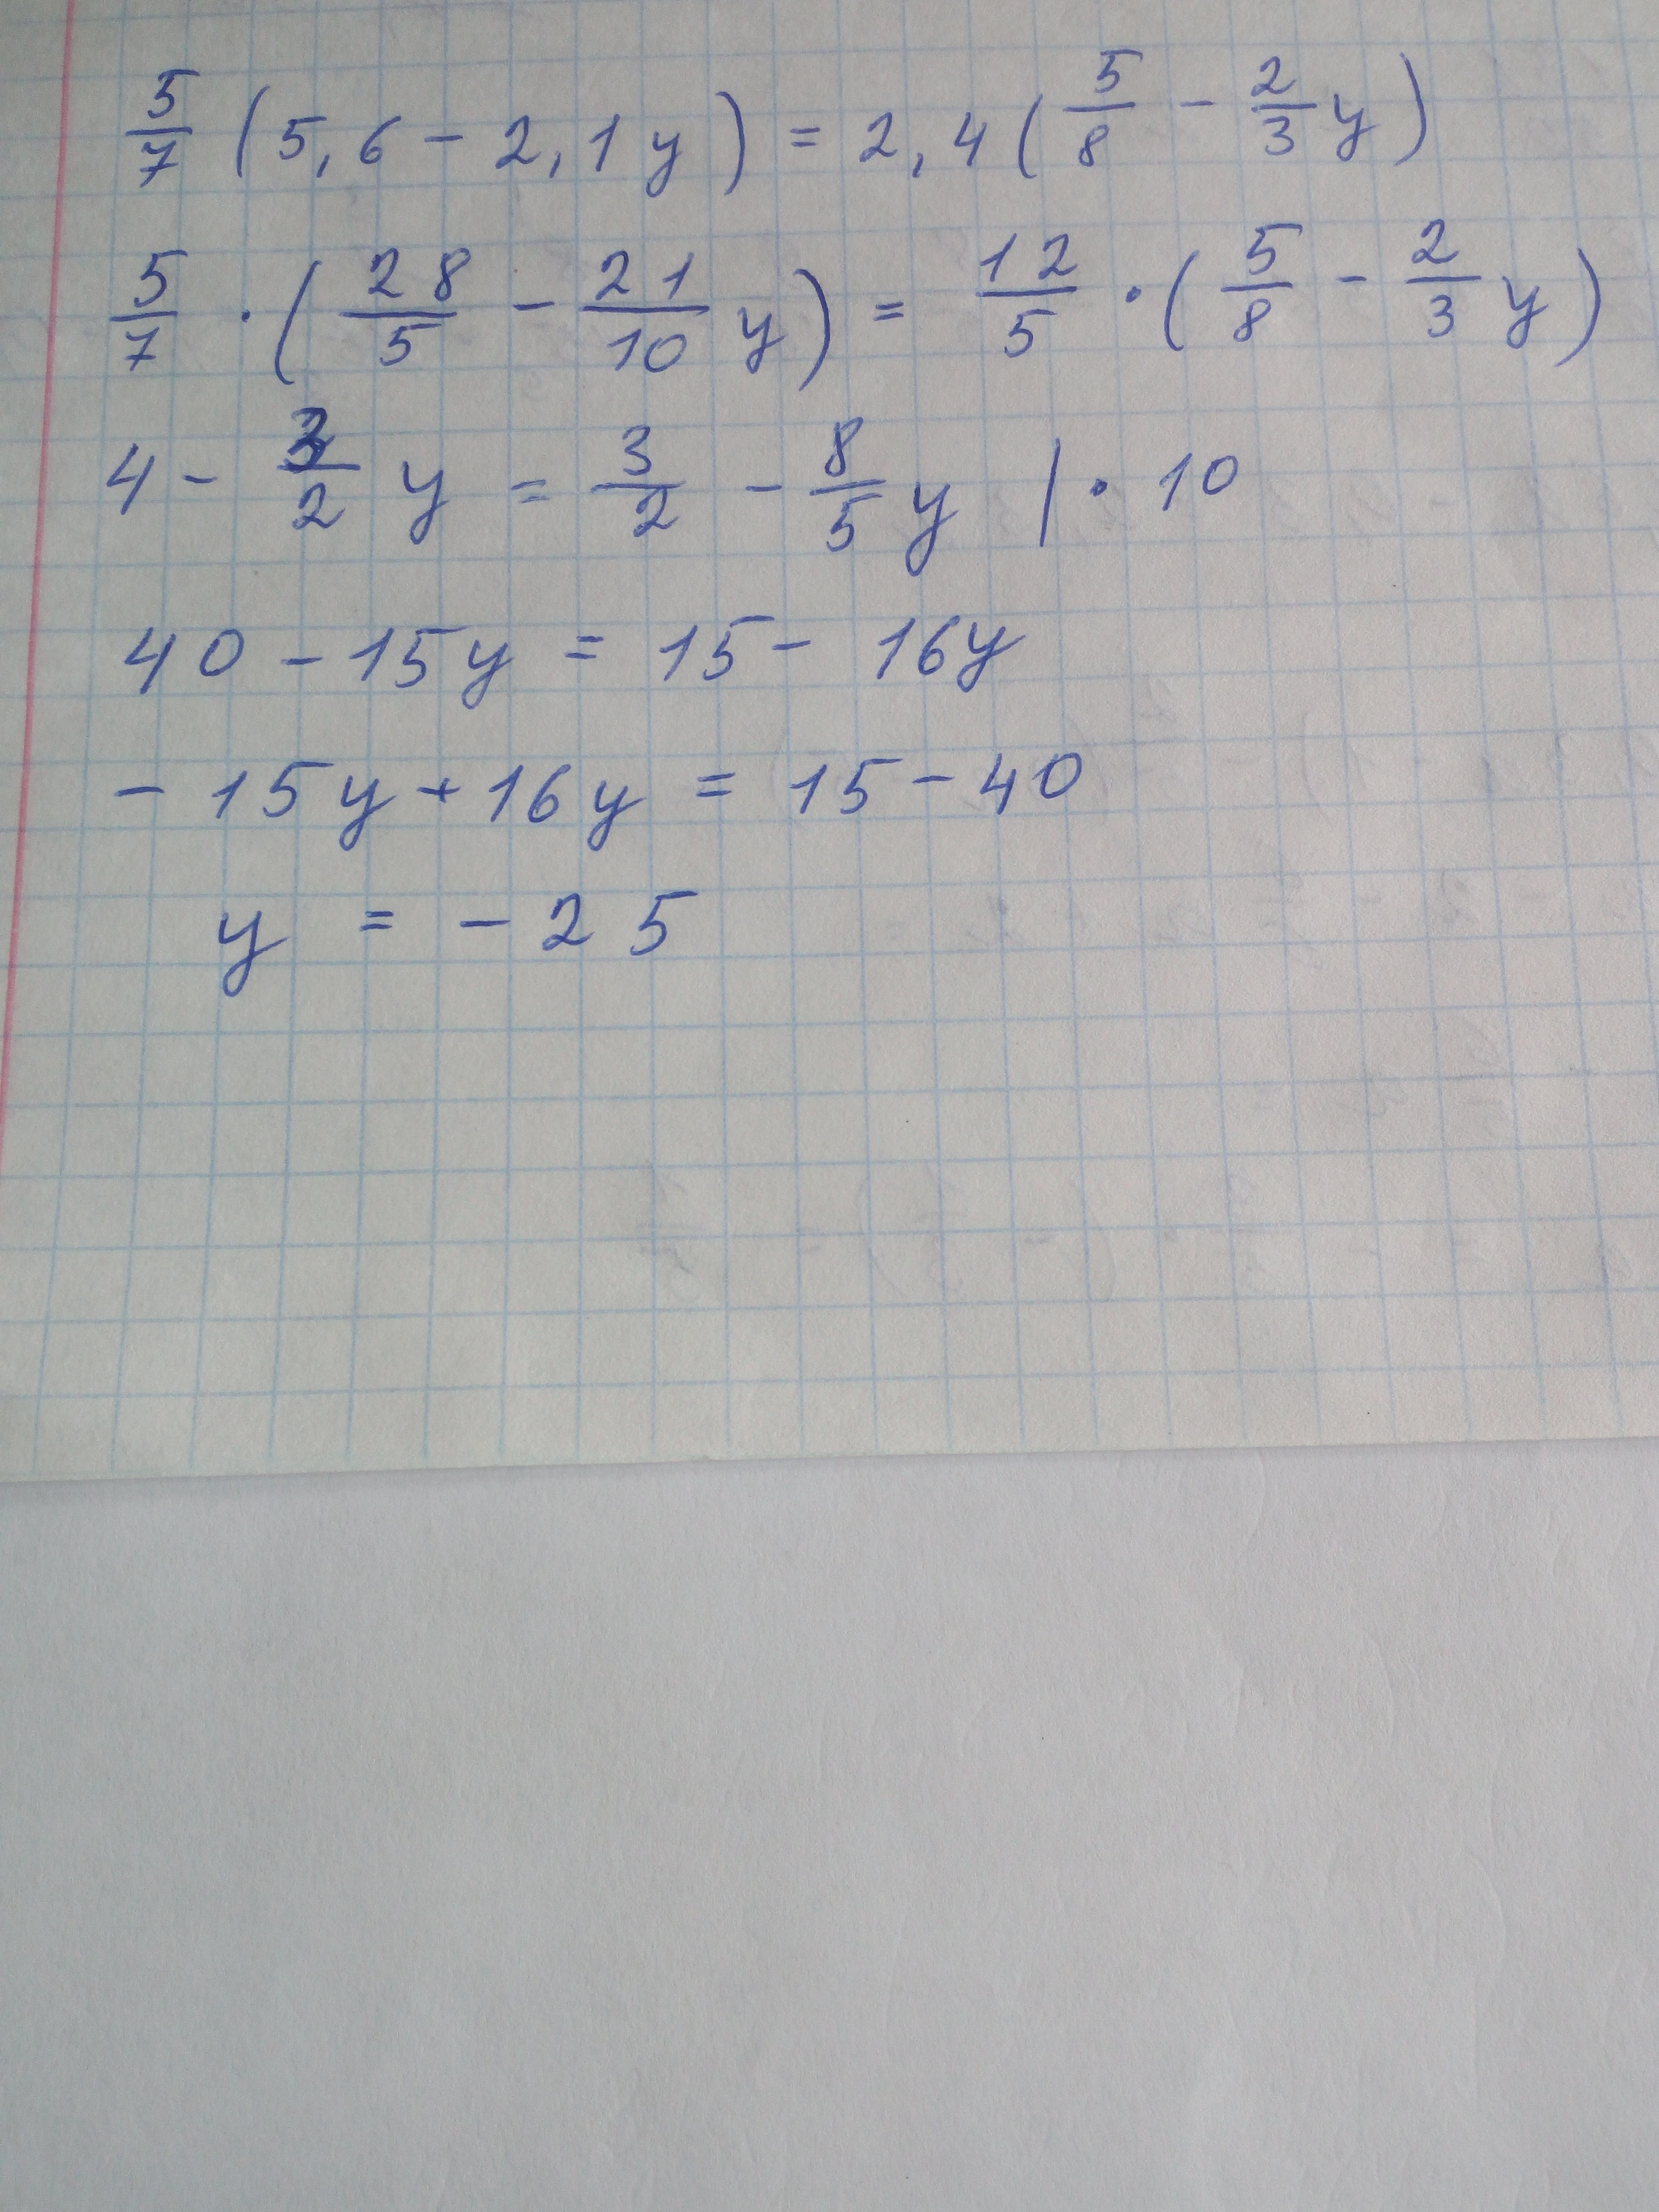 5/7 (5,6 - 2,1y) = 2,4 (5/8 - 2/3 y)
5/7 · (28/5 - 21/10 y) = 12/5 · (5/8 - 2/3 y)
4 - 3/2 y = 3/2 - 8/5 y | · 10
40 - 15y = 15 - 16y
- 15y + 16y = 15 - 40
y = - 25